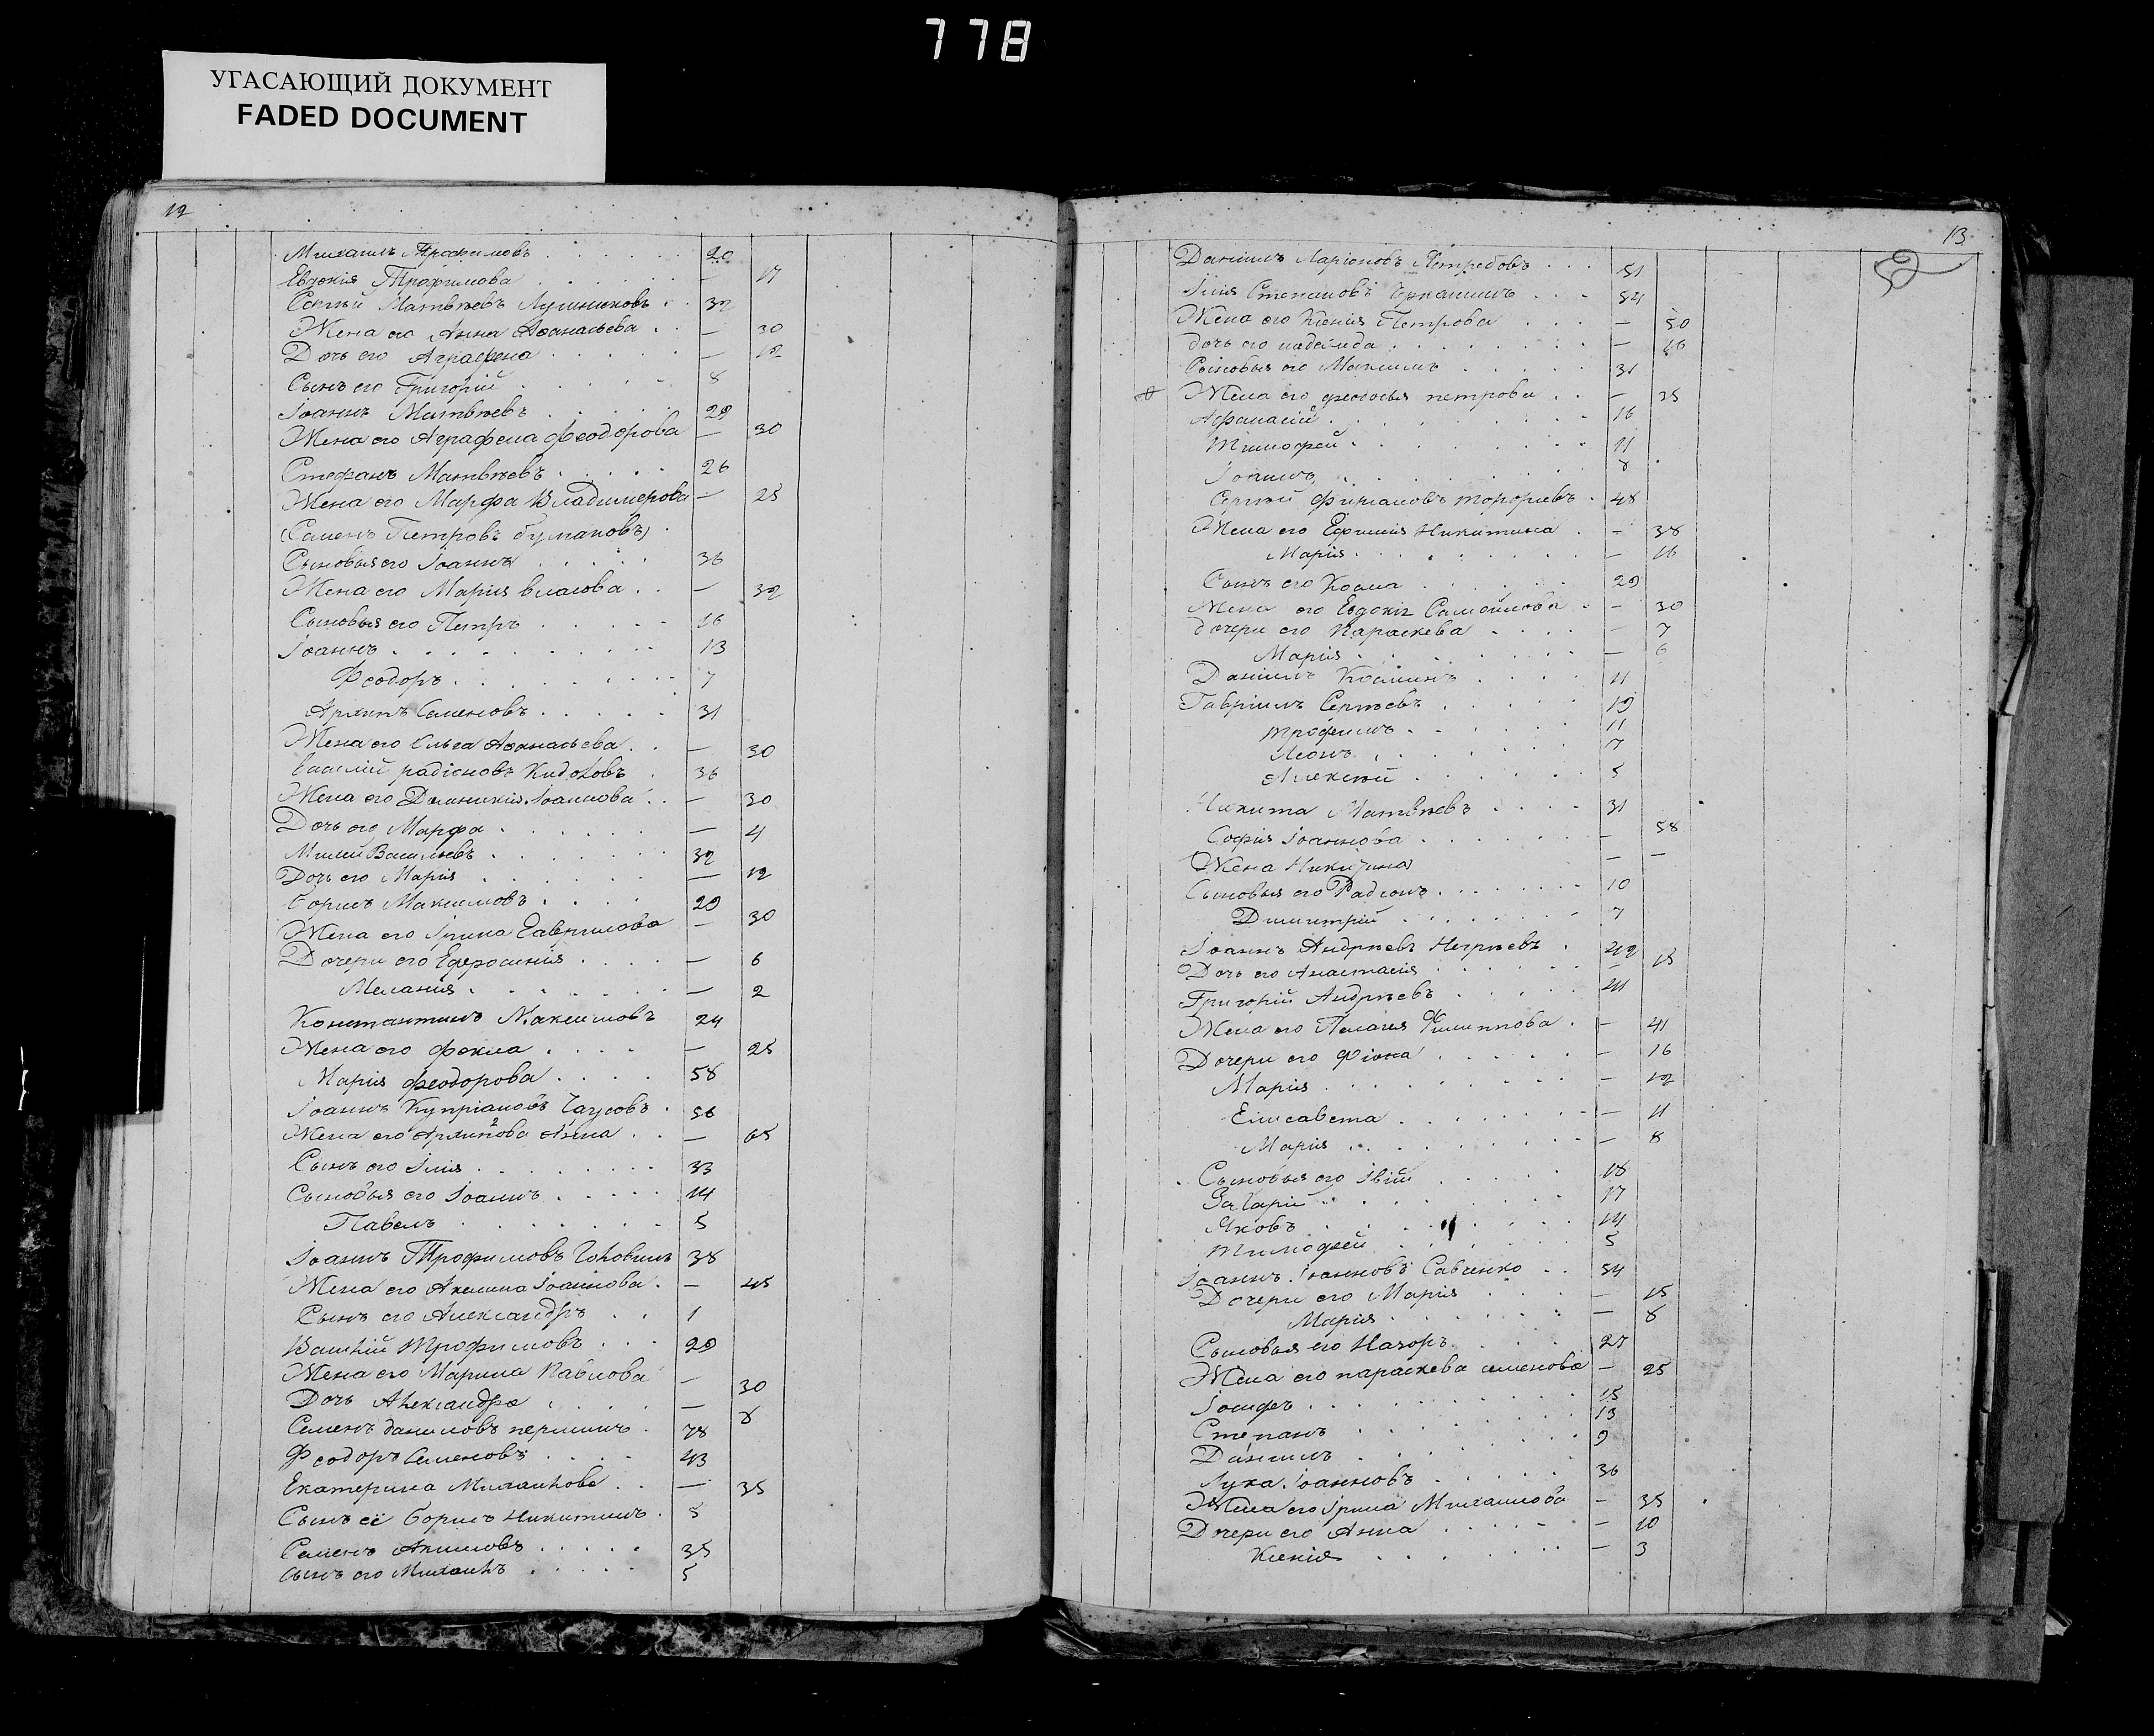 778
УГАСАЮЩИЙ ДОКУМЕНТ
FADED DOCUMENT
12
Михаилъ Трофимовъ 20
Евдокія Трофимова — 17
Сергѣй Матвѣевъ Лучниковъ 32
Жена его Анна Афанасьева — 30
Дочь его Аграфена — 12
Сынъ его Григорій 8
Іоаннъ Матвѣевъ 29
Жена его Аграфена Феодорова — 30
Стефанъ Матвѣевъ 26
Жена его Марфа Владимерова — 25
(Семенъ Петровъ Бумаковъ)
Сыновья его Іоаннъ 36
Жена его Марія власова — 32
Сыновья его Петръ 16
Іоаннъ 13
Феодоръ 7
Архипъ Семеновъ 31
Жена его Ольга Афанасьева — 30
Василій радіоновъ 36
Жена его Домникія Іоаннова — 30
Дочь его Марфа — 4
Васильевъ 32
Дочь его Марія — 12
Борисъ Максимовъ 29
Жена его Ірина Гаврилова — 30
Дочери его Ефросинія — 6
Меланія — 2
Константинъ Максимовъ 24
Жена его фекла — 25
Марія феодорова 58
Іоаннъ Купріановъ Чаусовъ 56
Жена его Архипова Анна — 65
Сынъ его Илія 33
Сыновья его Іоаннъ 14
Павелъ 5
Іоаннъ Трофимовъ 38
Жена его Акилина Іоаннова — 45
Сынъ его Александръ 1
Василій Трофимовъ 29
Жена его Марина Павлова — 30
Дочь Александра — 8
Семенъ даниловъ першинъ 78
Феодоръ Семеновъ 43
Екатерина Михаилова — 35
Сынъ её Борисъ Никитинъ 5
Семенъ Акимовъ 35
Сынъ его Михаилъ 5
13
Даніилъ Ларіоновъ Ястребовъ 51
Илія Степановъ 54
Жена его Ксенія Петрова — 50
дочь его надежда — 16
Сыновья его Максимъ 31
Жена его феодосья петрова — 35
Афанасій 16
Тимофей 11
Іоаннъ 8
Сергѣй 48
Жена его Ефимія Никитина — 38
Марія — 16
Сынъ его Козма 29
Жена его Евдокія Самойлова — 30
дочери его Параскева — 7
Марія — 6
Даніилъ Козминъ 11
Гавріилъ Сергѣевъ 19
трофимъ 11
Леонъ 7
Алексѣй 5
Никита Матвѣевъ 31
Софія Іоаннова — 58
Жена Никитина — —
Сыновья его Радіонъ 10
Димитрій 7
Іоаннъ Андрѣевъ Негрѣевъ 42
Дочь его Анастасія — 15
Григорій Андрѣевъ 44
Жена его Пелагея Филиппова — 41
Дочери его Фіона — 16
Марія — 12
Елисавета — 11
Марія — 8
Сыновья его 18
Захарій 17
Яковъ 14
Тимофей 5
Іоаннъ Іоанновъ Савенко 54
Дочери его Марія — 15
Марія — 8
Сыновья его Назаръ 27
Жена его параскева семенова — 25
Іосифъ 15
Степанъ 13
Даніилъ 9
Лука Іоанновъ 36
Жена его Ірина Михаилова — 35
Дочери его Анна — 10
Ксенія — 3